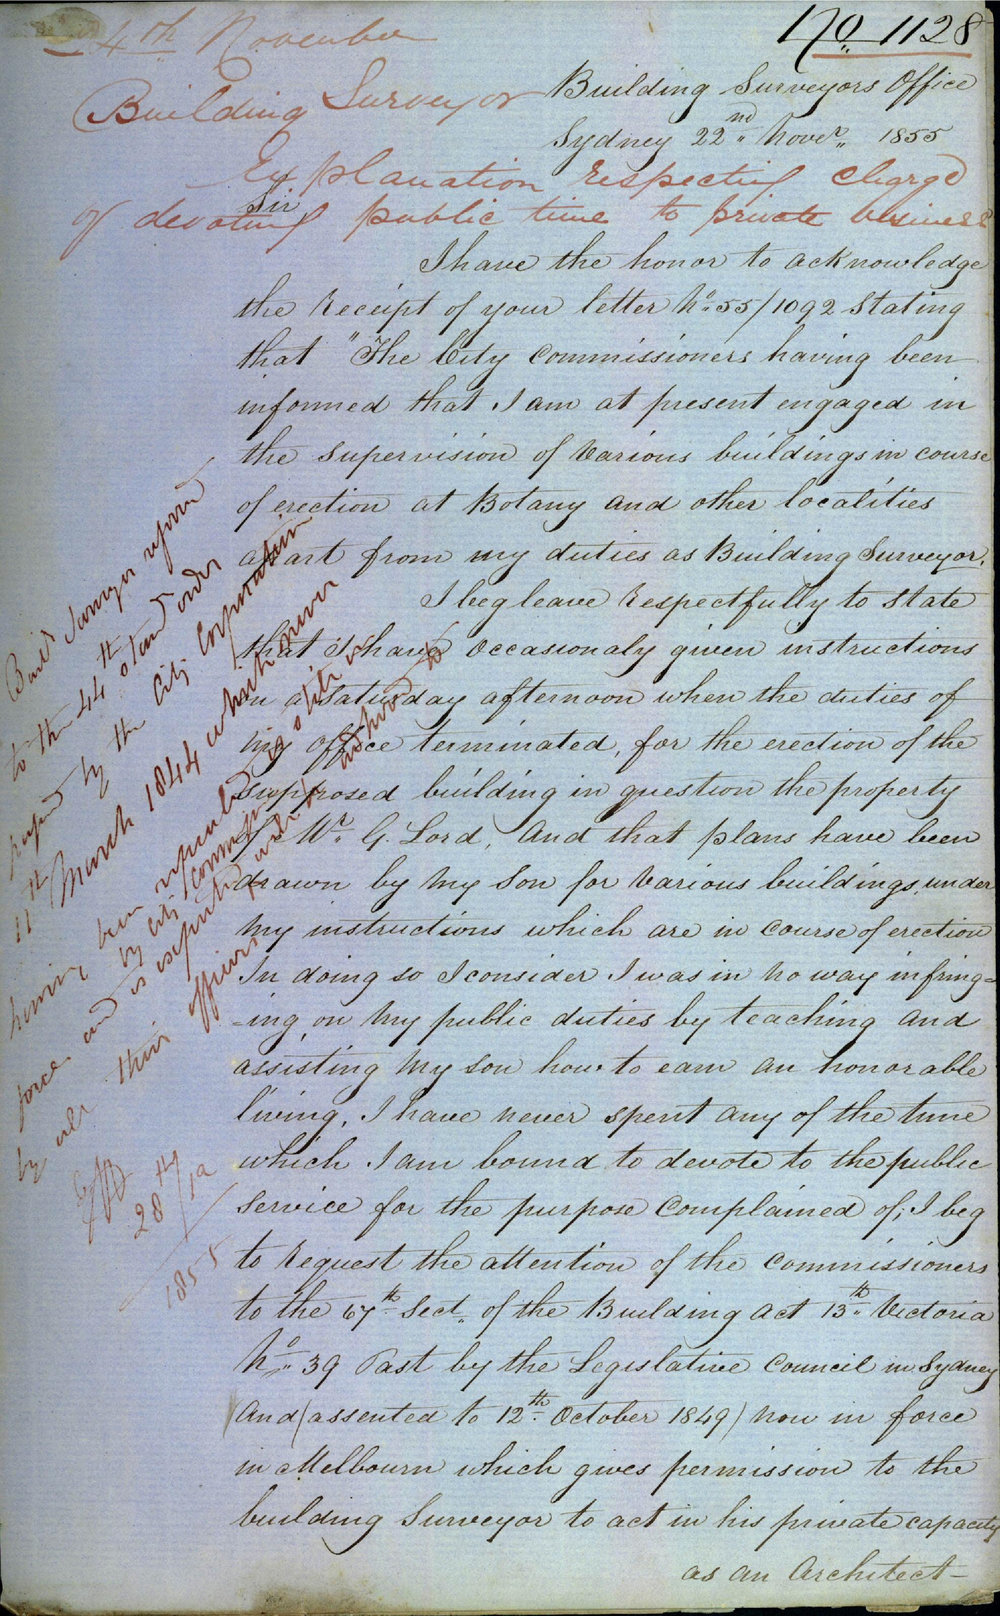 24th November
No. 1128
Building Surveyor
Building Surveyors Office
Sydney 22nd Novr. 1855
Explanation respecting charge
of devoting public time to private business
Sir
I have the honor to acknowledge
the Receipt of your letter No. 55/1092 Stating
that "The City Commissioners having been
informed that I am at present engaged in
the supervision of Various buildings in course
of erection at Botany and other localities
apart from my duties as Building Surveyor.
I beg leave Respectfully to State
that I have Occasionaly given instructions
on a Saturday afternoon when the duties of
my office terminated, for the erection of the
Supposed building in question the property
of Mr. G. Lord, And that plans have been
drawn by My Son for Various buildings, under
My instructions which are in Course of erection
In doing so I consider I was in No way infring=
=ing on My public duties by teaching and
assisting My Son how to earn an honorable
living, I have never spent any of the time
which I am bound to devote to the public
Service for the purpose Complained of; I beg
to Request the attention of the Commissioners
to the 67th Sect. of the Building Act 13th Victoria
No. 39 Past by the Legislative Council in Sydney
And (assented to 12th October 1849) now in force
in Melbourn which gives permission to the
building Surveyor to act in his private capacity
as an Architect—
Build Surveyor
to the 44th stand order
by the City Corporation
11th March 1844 which never
having been
by City Commissioners
force and is
by all their officers
28th
1855